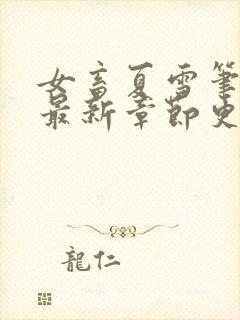 女畜夏雪筆
最新章節史
龍仁